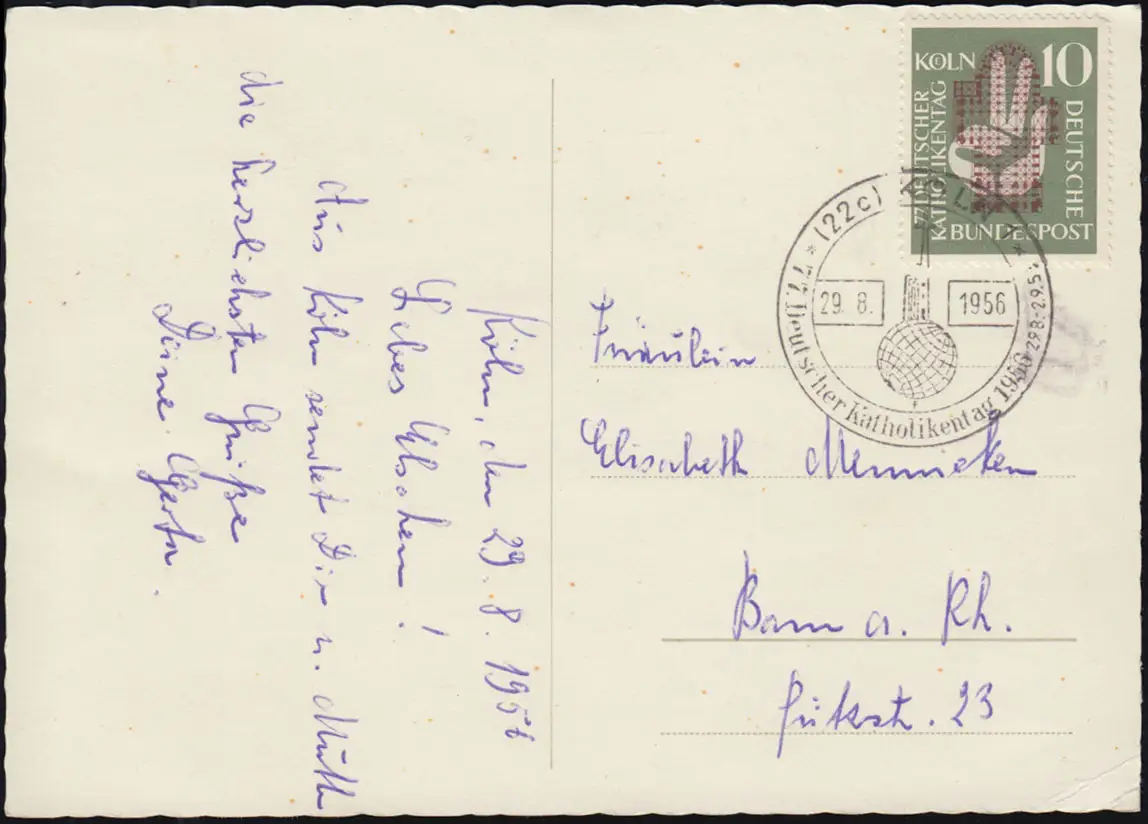 Köln, den 29. 8. 1956
Liebes Elschen!
Aus Köln sendet Dir u. Mutti
die herzlichsten Grüße
Deine Gerta.
KÖLN 10
77. DEUTSCHER
KATHOLIKENTAG
DEUTSCHE
BUNDESPOST
(22c) KÖLN
29. 8. 1956
77. Deutscher Katholikentag 1956 29.8.-2.9.5
Fräulein
Elisabeth Mennicken
Bonn a. Rh.
23